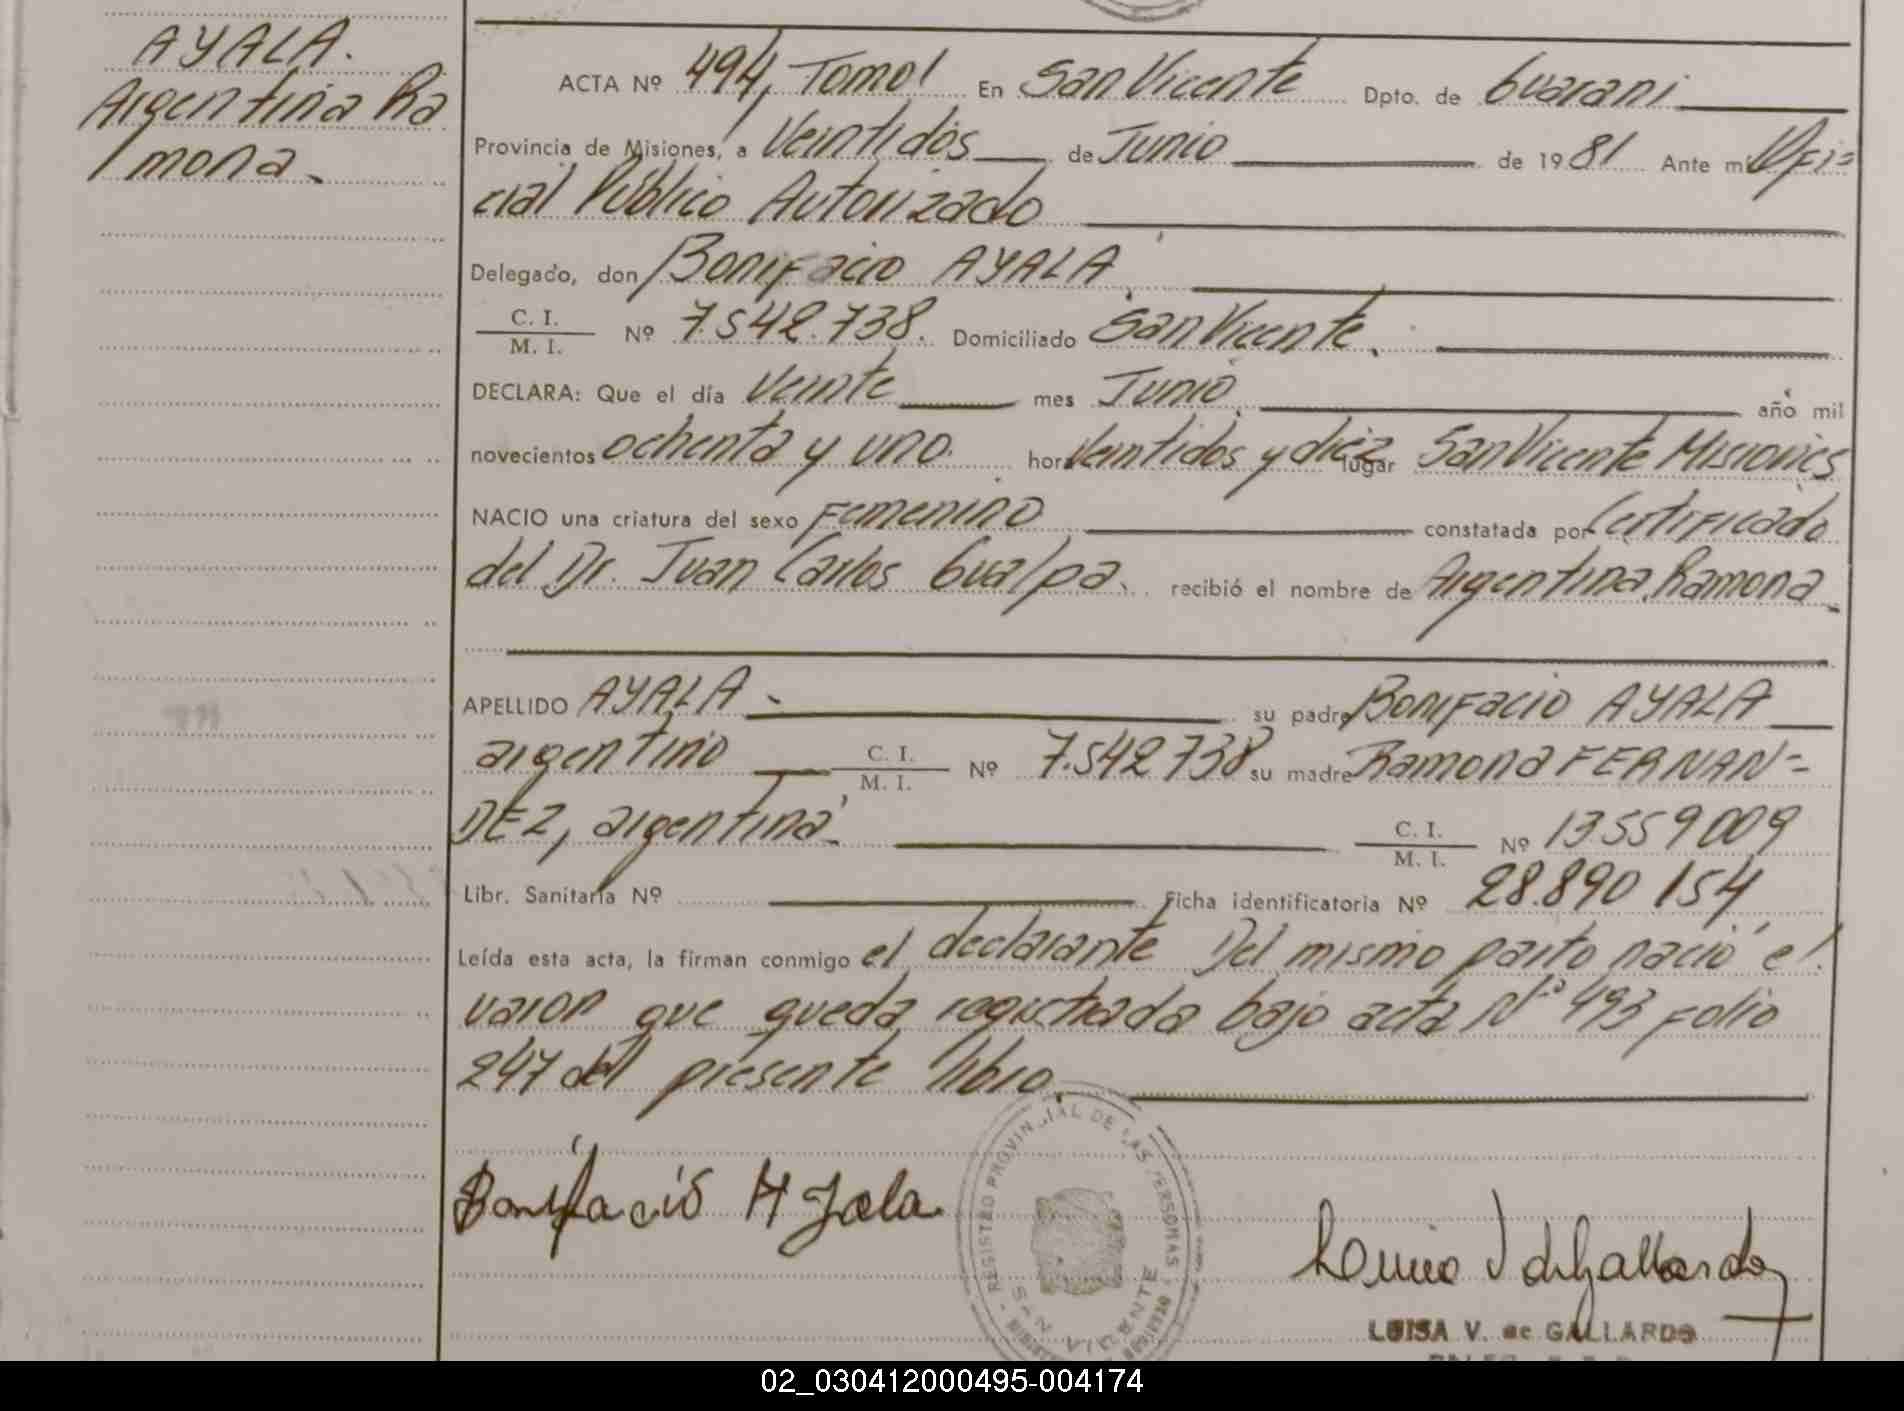 AYALA.
Argentina Ra
mona.
ACTA Nº 494, Tomo I En San Vicente Dpto. de Guarani
Provincia de Misiones, a Veintidós de Junio de 1981 Ante mí Ofi=
cial Público Autorizado
Delegado, don Bonifacio AYALA.
C. I. / M. I. Nº 7.542.738. Domiciliado San Vicente.
DECLARA: Que el día Veinte mes Junio año mil
novecientos ochenta y uno. hora Veintidos y diéz lugar San Vicente Misiones
NACIO una criatura del sexo Femenino constatada por Certificado
del Dr. Juan Carlos Gualpa. recibió el nombre de Argentina Ramona
APELLIDO AYALA su padre Bonifacio AYALA
argentino C. I. / M. I. Nº 7.542.738 su madre Ramona FERNAN=
DEZ, argentina C. I. / M. I. Nº 13559009
Libr. Sanitaria Nº Ficha identificatoria Nº 28.890 154
Leída esta acta, la firman conmigo el declarante Del mismo parto nació el
varon que queda registrada bajo acta Nº 493 folio
247 del presente libro.
Bonifació Ayala
REGISTRO PROVINCIAL DE LAS PERSONAS
SAN VICENTE
LUISA V. de GALLARDO
02_030412000495-004174